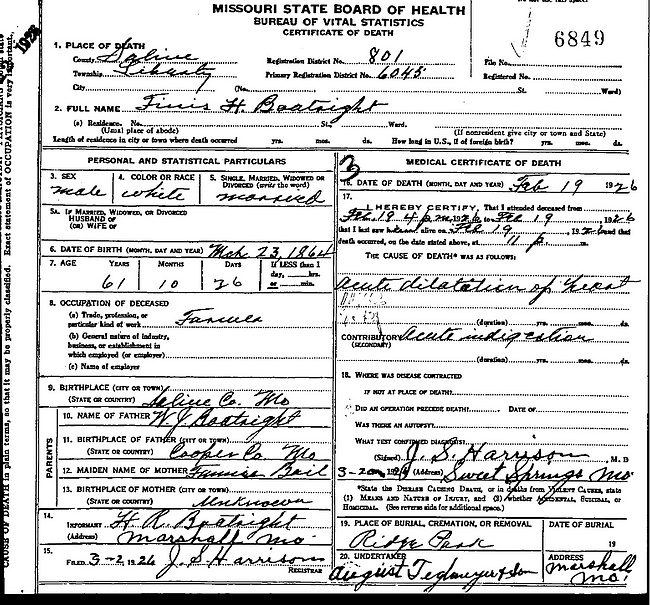 MISSOURI STATE BOARD OF HEALTH
BUREAU OF VITAL STATISTICS
CERTIFICATE OF DEATH
6849
1. PLACE OF DEATH
County Saline Registration District No. 801 File No.
Township Liberty Primary Registration District No. 6045 Registered No.
City (No. St. Ward)
2. FULL NAME Finis H. Boatright
(a) Residence. No. St., Ward.
(Usual place of abode) (If nonresident give city or town and State)
Length of residence in city or town where death occurred yrs. mos. ds. How long in U.S., if of foreign birth? yrs. mos. ds.
PERSONAL AND STATISTICAL PARTICULARS
3. SEX 4. COLOR OR RACE 5. SINGLE, MARRIED, WIDOWED OR DIVORCED (write the word)
male white married
5A. IF MARRIED, WIDOWED, OR DIVORCED
HUSBAND OF
(OR) WIFE OF
6. DATE OF BIRTH (MONTH, DAY AND YEAR) Mch 23, 1864
7. AGE YEARS MONTHS DAYS If LESS than 1
day, hrs.
or min.
61 10 26
8. OCCUPATION OF DECEASED
(a) Trade, profession, or
particular kind of work Farmer
(b) General nature of industry,
business, or establishment in
which employed (or employer)
(c) Name of employer
9. BIRTHPLACE (CITY OR TOWN)
(STATE OR COUNTRY) Saline Co. Mo
PARENTS
10. NAME OF FATHER W. J. Boatright
11. BIRTHPLACE OF FATHER (CITY OR TOWN)
(STATE OR COUNTRY) Cooper Co. Mo
12. MAIDEN NAME OF MOTHER
13. BIRTHPLACE OF MOTHER (CITY OR TOWN)
(STATE OR COUNTRY) Unknown
14.
INFORMANT H. R. Boatright
(Address) Marshall Mo.
15.
FILED 3-2 1926 J. S. Harrison
REGISTRAR
3
MEDICAL CERTIFICATE OF DEATH
16. DATE OF DEATH (MONTH, DAY AND YEAR) Feb 19 1926
17.
I HEREBY CERTIFY, That I attended deceased from
Feb. 19 4 p.m., 1926 to Feb 19, 1926
that I last saw alive on Feb 19, 1926 and that
death occurred, on the date stated above, at 11 p m.
THE CAUSE OF DEATH* WAS AS FOLLOWS:
Acute dilatation of heart
(duration) yrs. mos. ds.
CONTRIBUTORY Acute indigestion
(SECONDARY)
(duration) yrs. mos. ds.
18. WHERE WAS DISEASE CONTRACTED
IF NOT AT PLACE OF DEATH?
DID AN OPERATION PRECEDE DEATH? DATE OF
WAS THERE AN AUTOPSY?
WHAT TEST CONFIRMED DIAGNOSIS?
(Signed) J. S. Harrison, M. D
(Address) Sweet Springs Mo.
*State the DISEASE CAUSING DEATH, or in deaths from VIOLENT CAUSES, state
(1) MEANS AND NATURE OF INJURY, and (2) whether ACCIDENTAL, SUICIDAL, or
HOMICIDAL. (See reverse side for additional space.)
19. PLACE OF BURIAL, CREMATION, OR REMOVAL DATE OF BURIAL
Ridge Park 19
20. UNDERTAKER ADDRESS
August Teglmeyer & Son Marshall
Mo.
CAUSE OF DEATH in plain terms, so that it may be properly classified. Exact statement of OCCUPATION is very important.